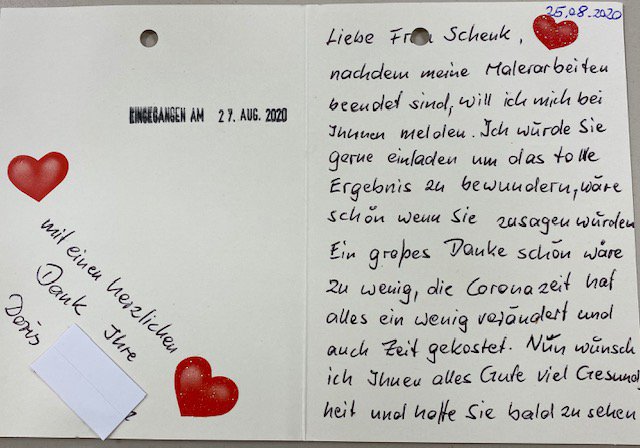 25.08.2020
Liebe Frau Schenk,
nachdem meine Malerarbeiten
beendet sind, will ich mich bei
Ihnnen melden. Ich würde Sie
gerne einladen um das tolle
Ergebnis zu bewundern, wäre
schön wenn Sie zusagen würden
Ein großes Danke schön wäre
zu wenig, die Coronazeit hat
alles ein wenig verändert und
auch Zeit gekostet. Nun wünsch
ich Ihnen alles Gute viel Gesund
heit und hoffe Sie bald zu sehen
EINGEGANGEN AM 27. AUG. 2020
mit einen herzlichen
Dank Ihre
Doris